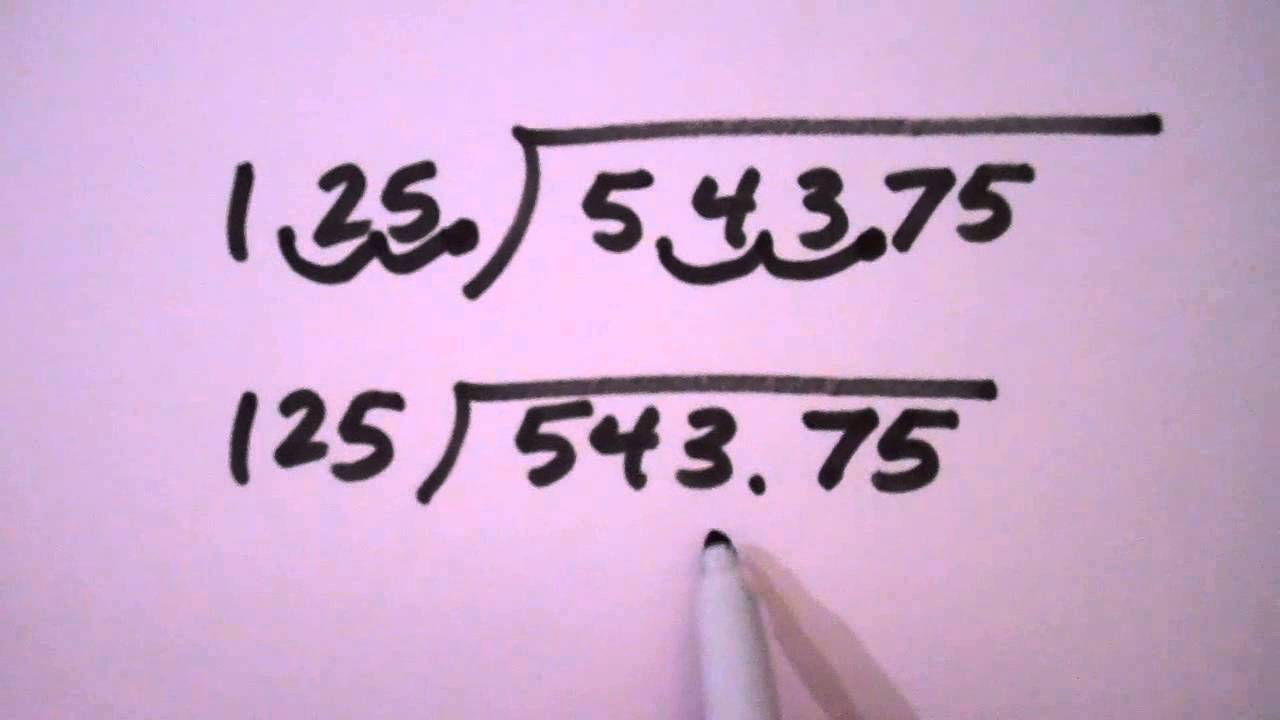 1 25. ) 5 43.75
125 ) 543.75